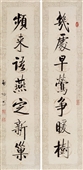 幾處早鶯爭暖樹
頻來語燕定新巢